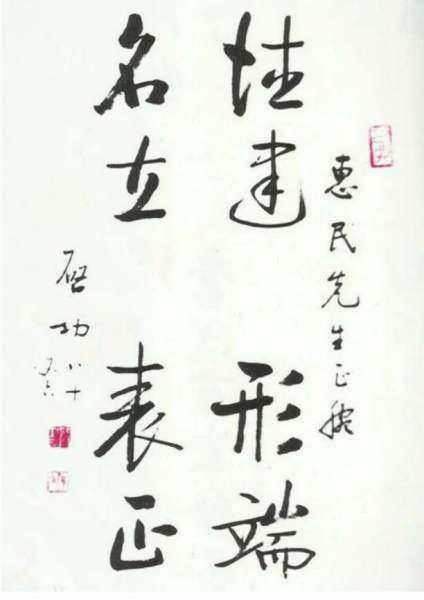 惠民先生正腕
德建 形端
名立 表正
啓功 八十
又六